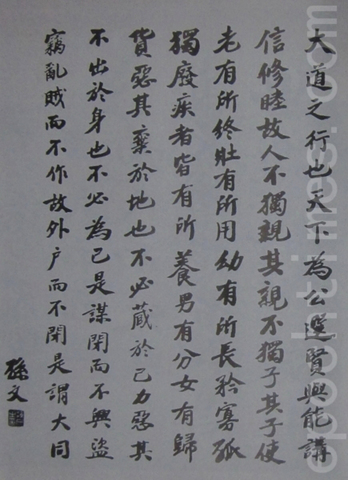 大道之行也天下為公選賢與能講
信修睦故人不獨親其親不獨子其子使
老有所終壯有所用幼有所長矜寡孤
獨廢疾者皆有所養男有分女有歸
貨惡其棄於地也不必藏於己力惡其
不出於身也不必為己是謀閉而不興盜
竊亂賊而不作故外戶而不閉是謂大同
孫文
epochtimes.com